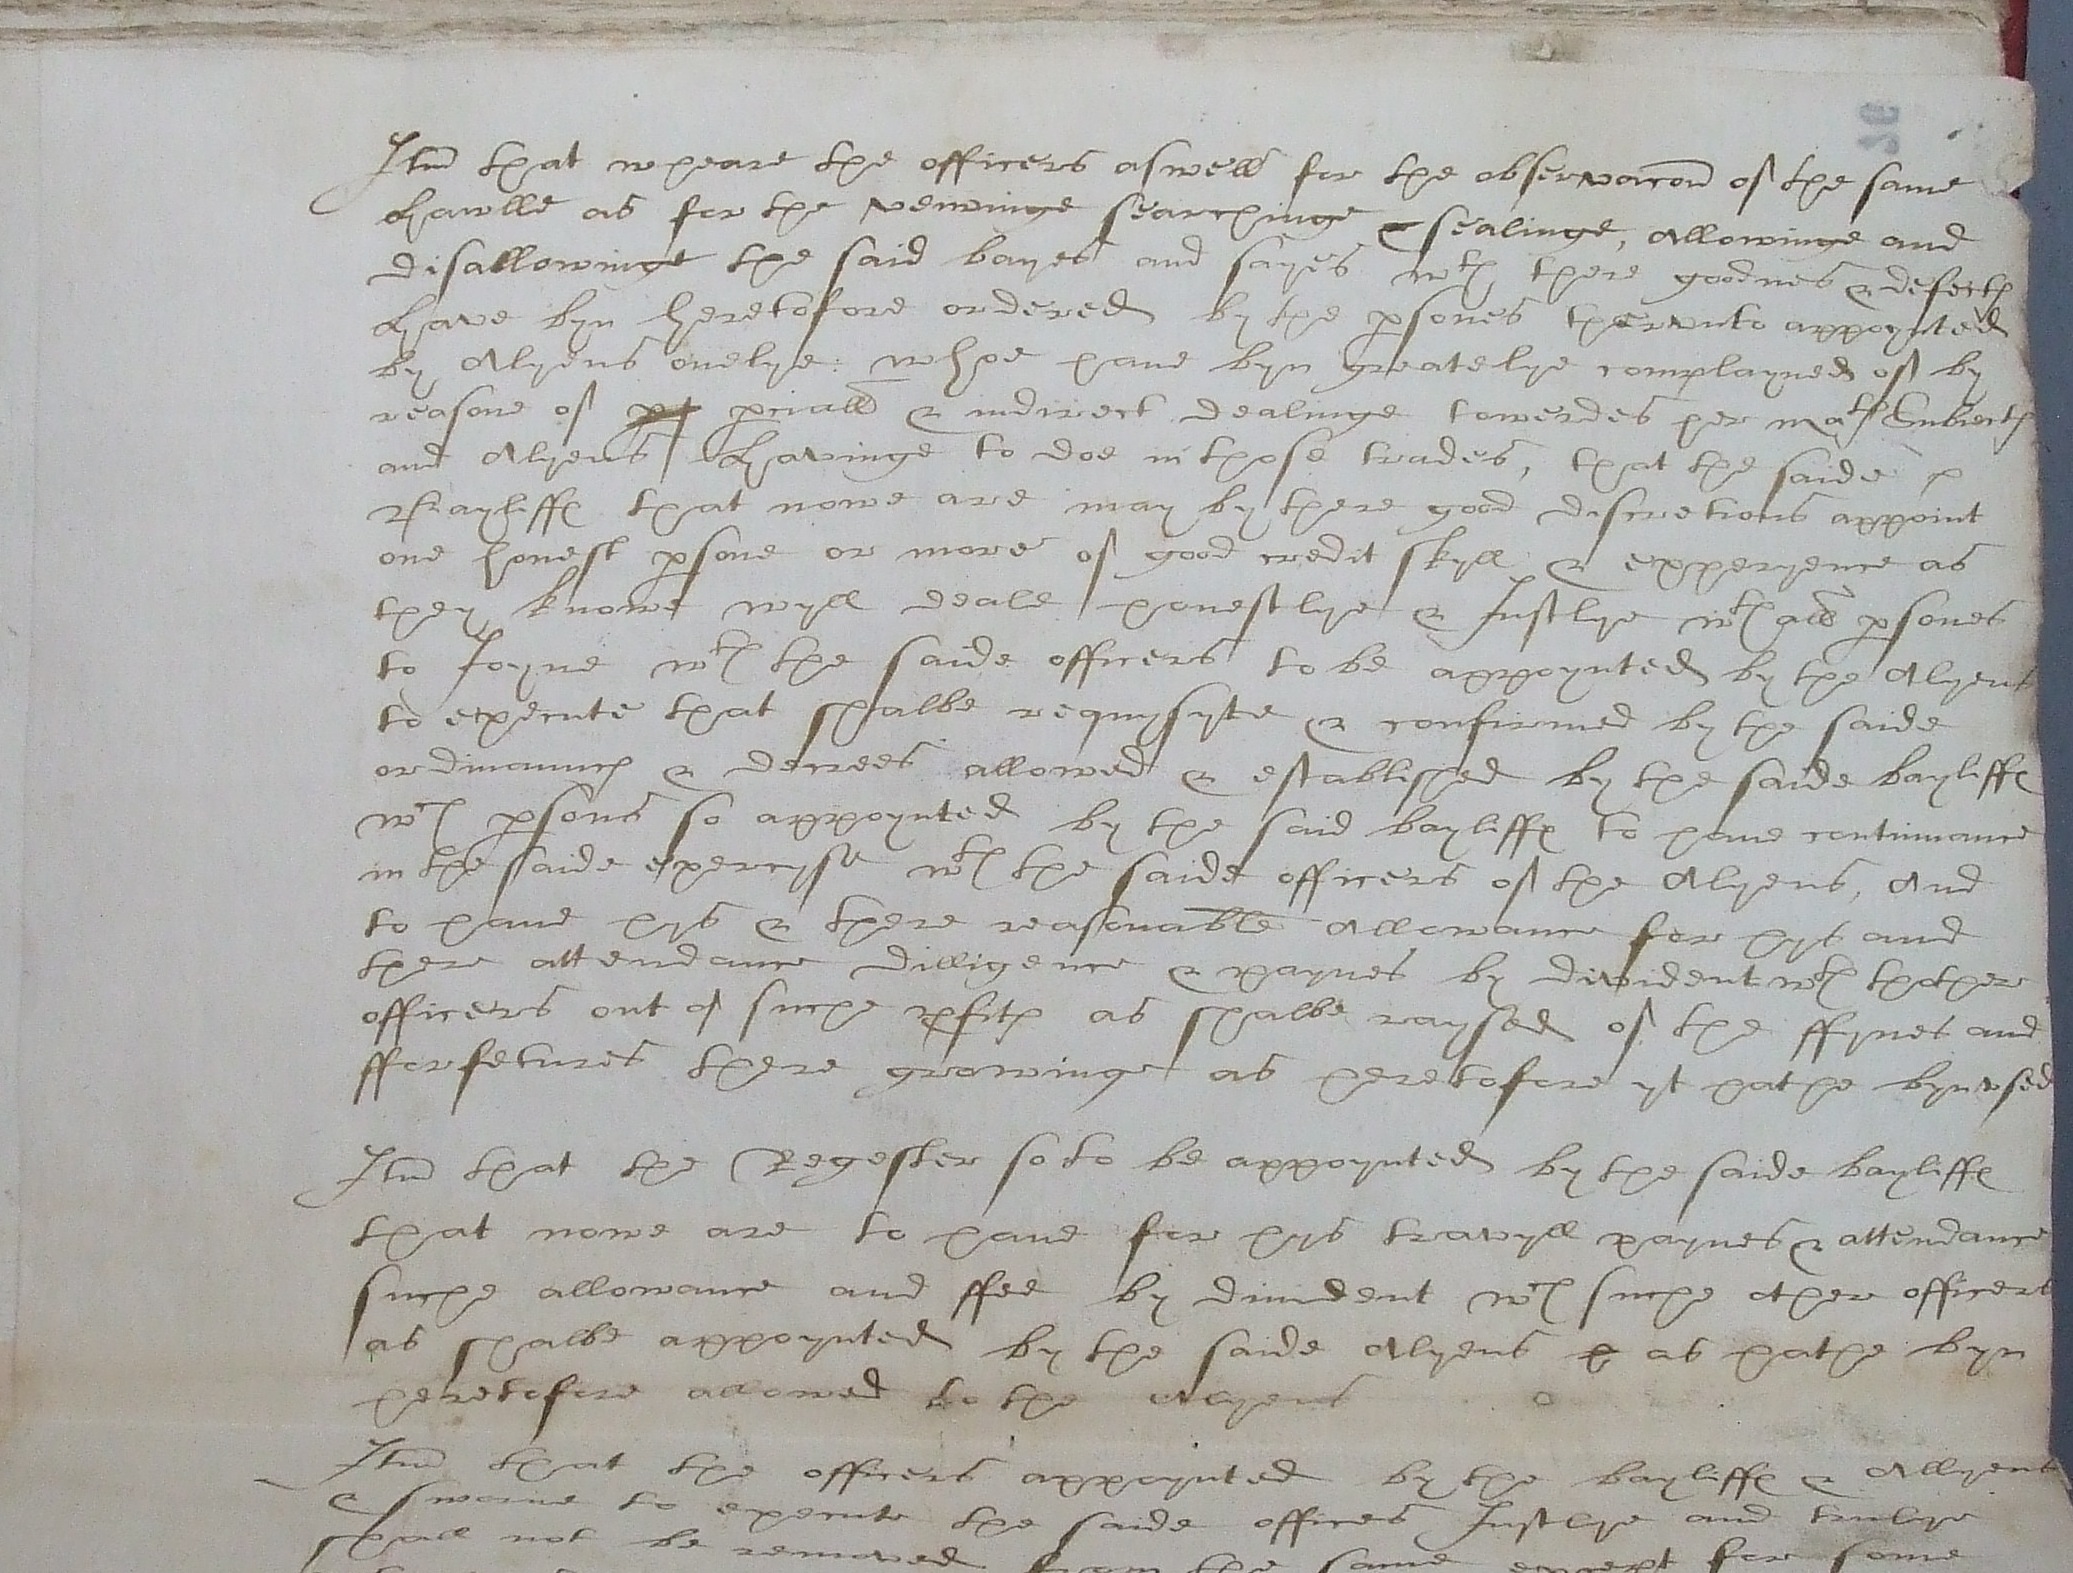 Itm that wheare the officers aswell for the observacon of the same
hawlle as for the vewinge searchinge & sealinge, allowinge and
disallowinge the said bayes and sayes wth there goodnes & defects
have byn heretofore ordered by the psones therunto appoynted
by Alyens onelye: whoe haue byn greatelye complayned of by
reasone of pciall & indirect dealinge towerdes her mats Subiects
and Alyens havinge to doe in those trades, that the saide
Bayliffs that nowe are may by there good discretions appoint
one honest psone or more of good credit skyll & experyence as
they knowe wyll deale honestlye & Justlye wth all psones
to Joyne wth the saide officers to be appoynted by the Alyens
to execute that shalbe requysyte & confirmed by the saide
ordinaunces & decrees allowed & established by the saide bayliffs
wch psons so appoynted by the said bayliffs to haue continuance
in the saide exercyse wth the saide officers of the Alyens, And
to haue hys & there reasonable Allowance for hys and
there attendance dilligence & paynes by divident wth thother
officers out of suche pfits as shalbe raysed of the ffynes and
fforfetures there growinge as heretofore yt hathe byn vsed
Itm that the Regester so to be appoynted by the saide bayliffs
that nowe are to haue for hys travyll paynes & attendance
suche allowance and ffee by diuident wth suche other officers
as shalbe appoynted by the saide Alyens as hathe byn
heretofore allowed to the Alyens
Itm that the officers appoynted by the bayliffs & Allyens
& sworne to execute the saide offices Justlye and trulye
shall not be removed from the same except for some